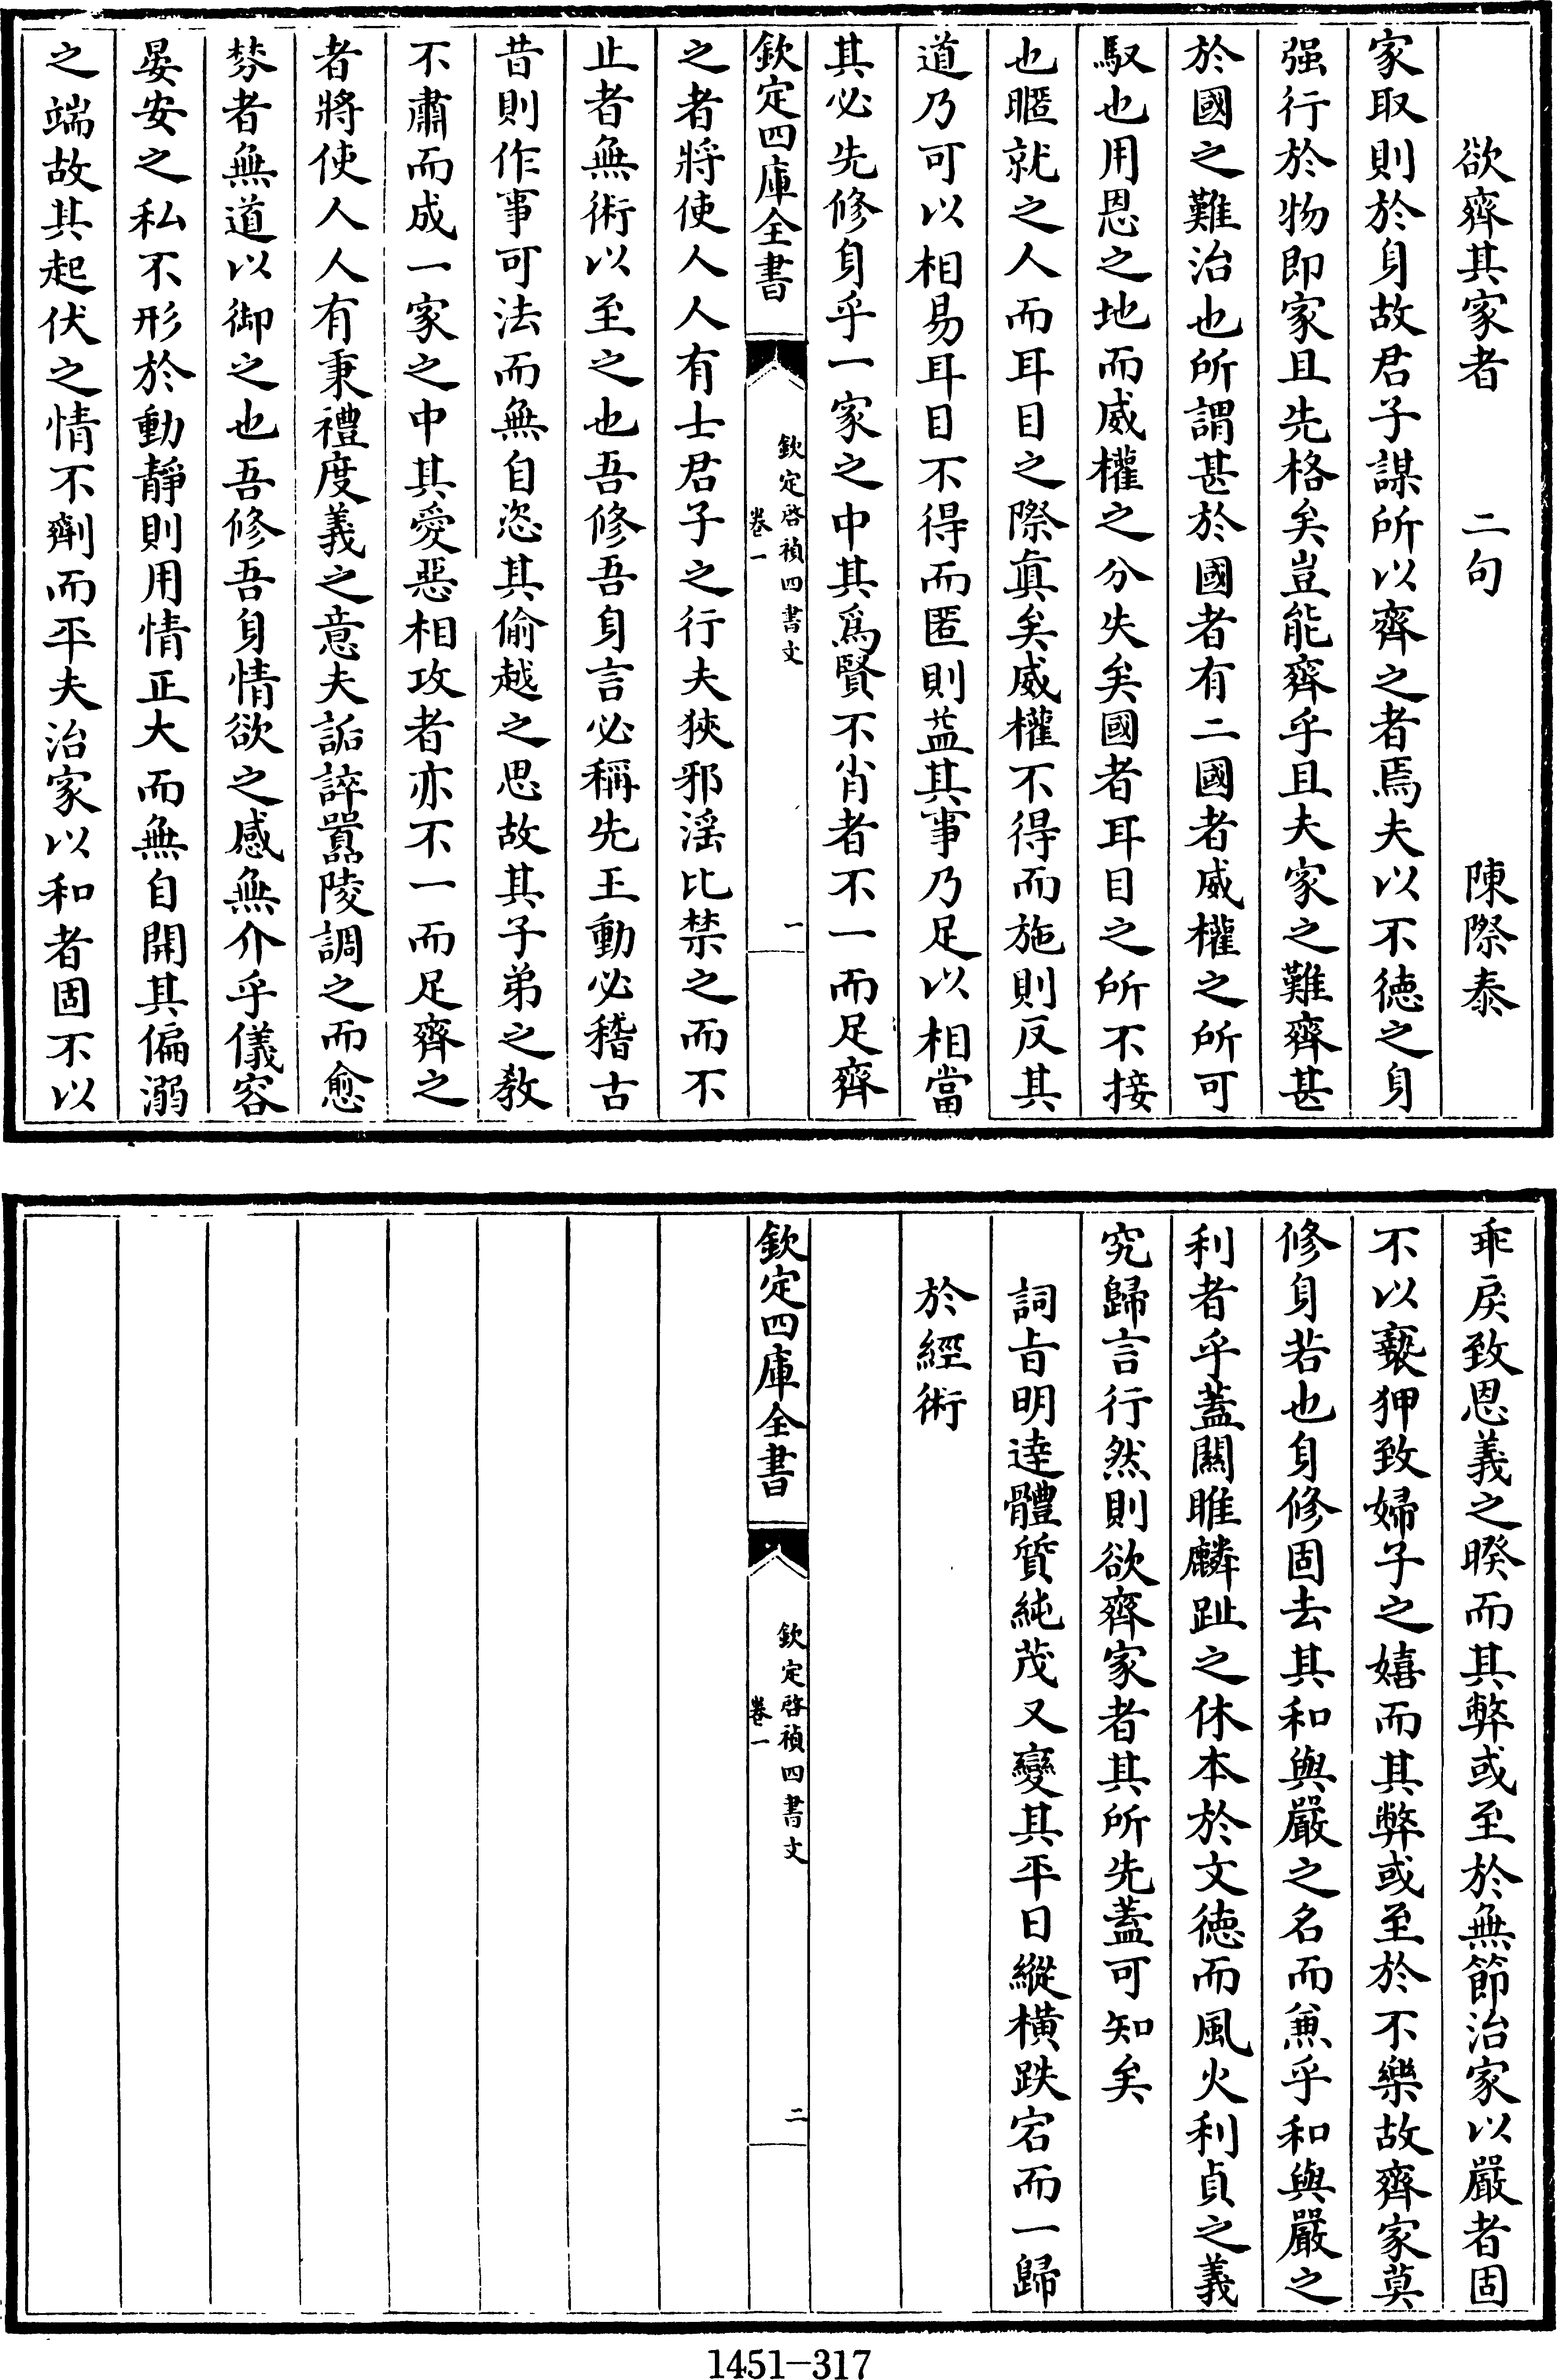 欲齊其家者　二句　陳際泰
家取則於身故君子謀所以齊之者焉夫以不徳之身
强行於物即家且先格矣豈能齊乎且夫家之難齊甚
於國之難治也所謂甚於國者有二國者威權之所可
馭也用恩之地而威權之分失矣國者耳目之所不接
也暱就之人而耳目之際真矣威權不得而施則反其
道乃可以相易耳目不得而匿則葢其事乃足以相當
其必先修身乎一家之中其為賢不肖者不一而足齊
欽定四庫全書
欽定啓禎四書文
卷一
一
之者將使人人有士君子之行夫狹邪滛比禁之而不
止者無術以至之也吾修吾身言必稱先王動必稽古
昔則作事可法而無自恣其偷越之思故其子弟之敎
不肅而成一家之中其愛惡相攻者亦不一而足齊之
者將使人人有秉禮度義之意夫詬誶嚚陵調之而愈
棼者無道以御之也吾修吾身情欲之感無介乎儀容
晏安之私不形於動靜則用情正大而無自開其偏溺
之端故其起伏之情不劑而平夫治家以和者固不以
乖戾致恩義之暌而其弊或至於無節治家以嚴者固
不以褻狎致婦子之嬉而其弊或至於不樂故齊家莫
修身若也身修固去其和與嚴之名而兼乎和與嚴之
利者乎蓋關雎麟趾之休本於文徳而風火利貞之義
究歸言行然則欲齊家者其所先蓋可知矣
詞旨明達體質純茂又變其平日縱橫跌宕而一歸
於經術
欽定四庫全書
欽定啓禎四書文
卷一
二
1451-317